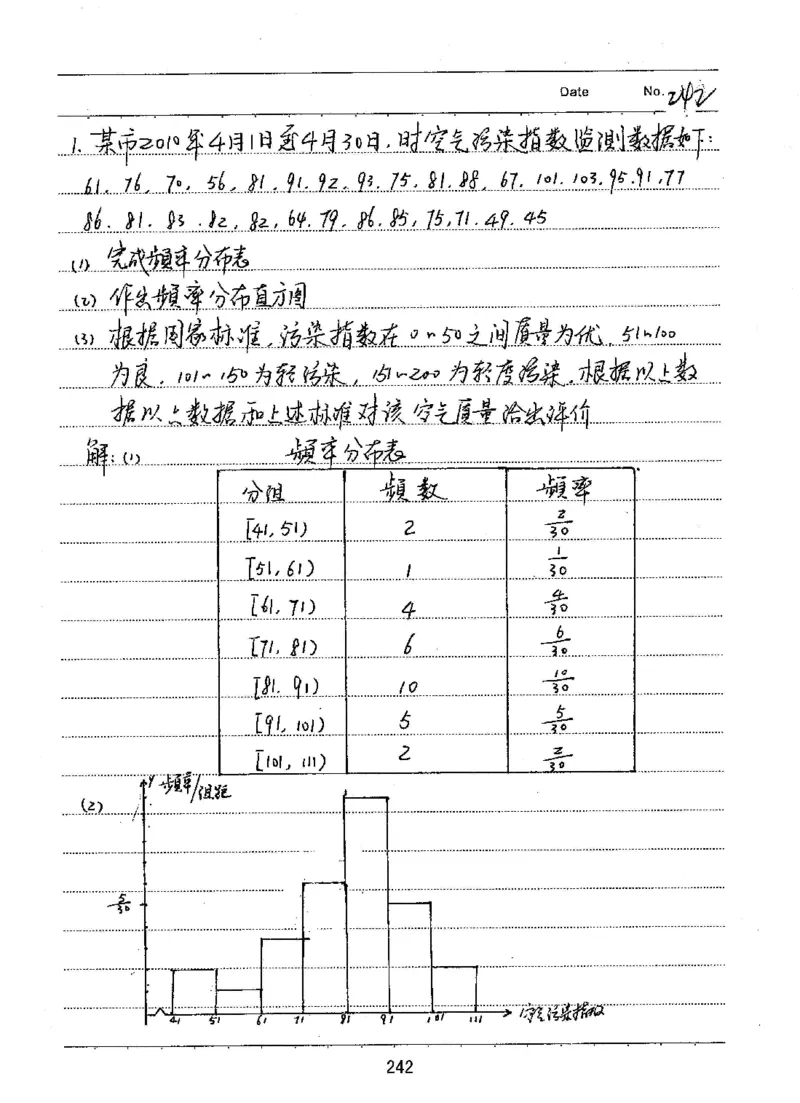 Date No. 242
1. 某市2010年4月1日至4月30日,时空气污染指数监测数据如下:
61. 76, 70, 56, 81, 91. 92. 93. 75. 81. 88, 67. 101. 103. 95. 91, 77
86. 81. 83. 82, 82, 64. 79. 86. 85, 75, 71. 49. 45
(1) 完成频率分布表
(2) 作出频率分布直方图
(3) 根据国家标准,污染指数在0~50之间质量为优. 51~100
为良. 101~150为轻污染, 151~200为轻度污染. 根据以上数
据以上数据和上述标准对该空气质量给出评价
解: (1) 频率分布表
分组 频数 频率
[41, 51) 2 2/30
[51, 61) 1 1/30
[61, 71) 4 4/30
[71, 81) 6 6/30
[81. 91) 10 10/30
[91, 101) 5 5/30
[101, 111) 2 2/30
(2) y 频率/组距
5/30
41 51 61 71 81 91 101 111 空气污染指数
242